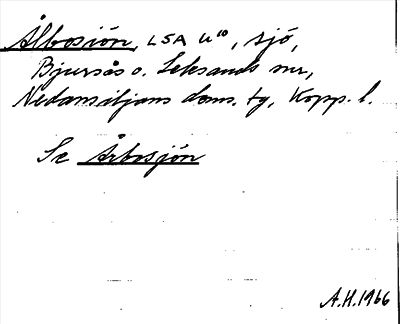 Ålbosjön, LSA U¹⁰, sjö,
Bjursås o. Leksands snr,
Nedansiljans doms. tg, Kopp. l.
Se Årbosjön
A.H. 1966